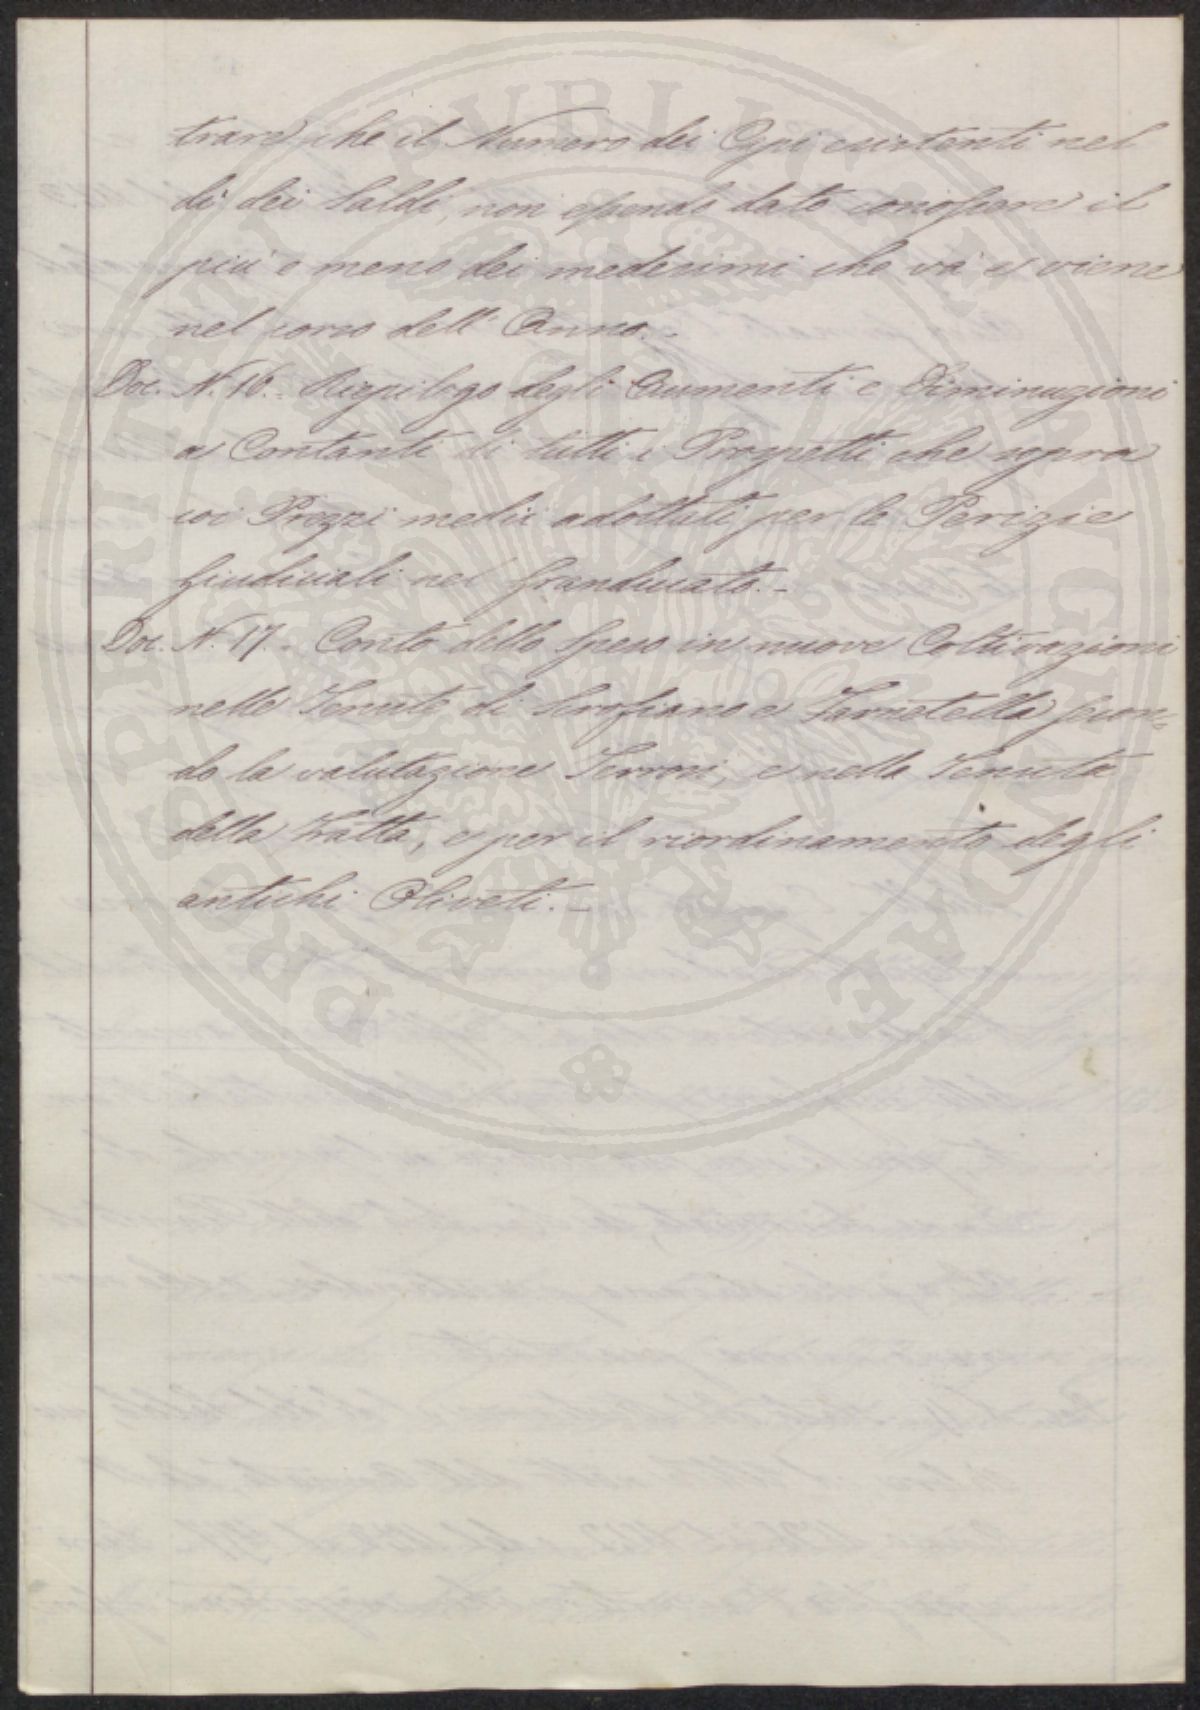 trare che il Numero dei Capi esistenti nel
dì dei Saldi, non essendo dato conoscere il
più o meno dei medesimi che và e viene
nel corso dell'Anno. -
Doc. N. 16. - Riepilogo degli Aumenti e Diminuzioni
a Contanti di tutti i Prospetti che sopra
coi Prezzi medii adottati per le Perizie
Giudiciali nel Granducato. -
Doc. N. 17. - Conto delle Spese in nuove Coltivazioni
nelle Tenute di Scrofiano e Farnetella secon=
do la valutazione Terrosi, e nella Tenuta
della Fratta, e per il riordinamento degli
antichi Oliveti. -
PROSPERITATI PVBLICAE AVGENDAE